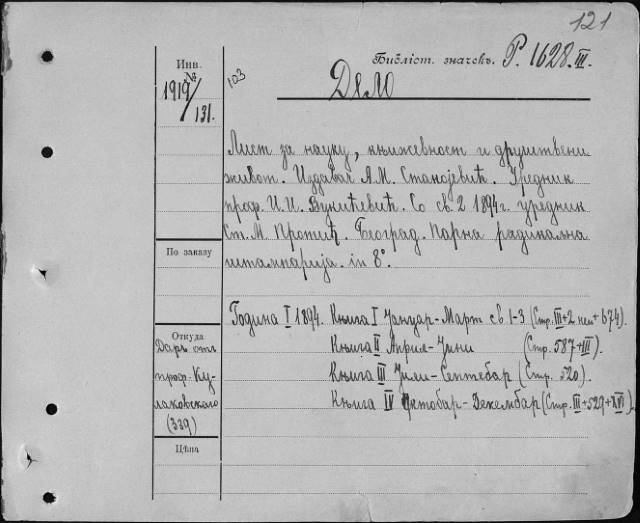 121
Инв.
Библіот. значекъ. P. 1628. III.
1919/131.
103
Дело
Лист за науку, књижевност и друштвени
живот. Издавач А.М. Станојевић. Уредник
проф. И.И. Вукићевић. Со св. 2 1894г. уредник
Ст. М. Протић. Београд. Парна радикална
штампарија. in 8°.
По заказу
Година I 1894. Књига I Јануар-Март св. 1-3 (Стр. III+2 нен + 674)
Откуда
Даръ отъ
проф. Ку-
лаковскаго
(339)
Књига II Април-Јуни (Стр. 587+III).
Књига III Јули-Септебар (Стр. 520).
Књига IV Октобар-Декембар (Стр. III+529+XVI).
Цѣна